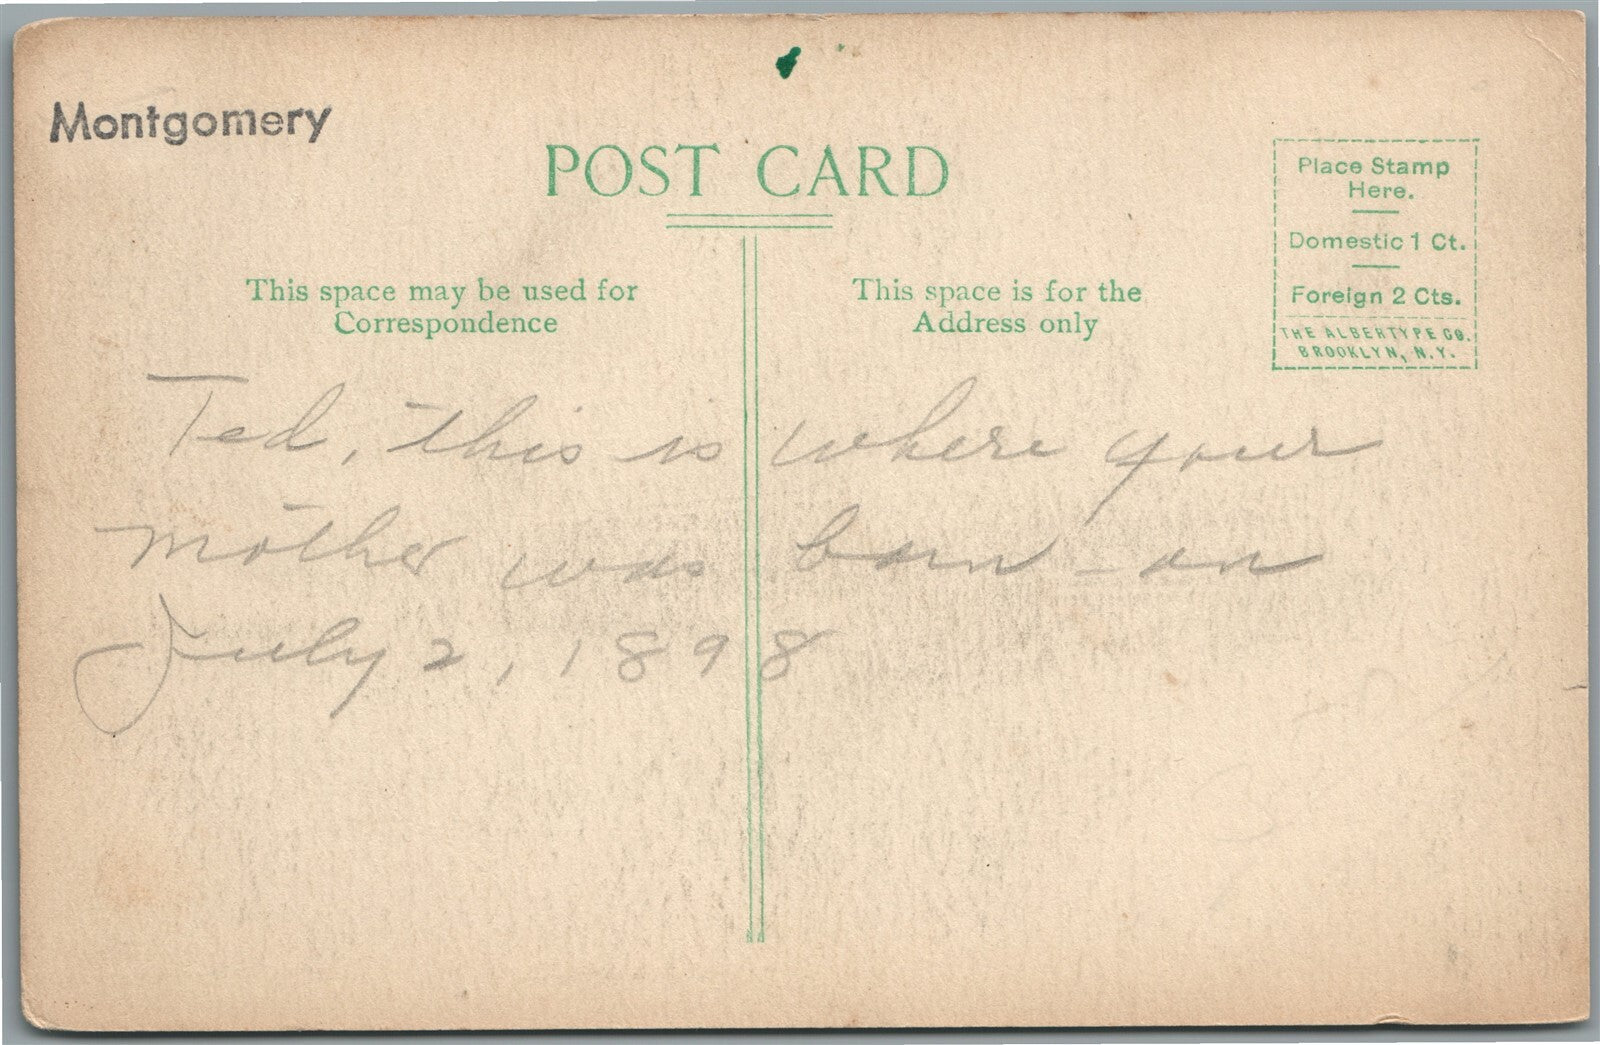 Montgomery
POST CARD
Place Stamp
Here.
Domestic 1 Ct.
Foreign 2 Cts.
THE ALBERTYPE CO.
BROOKLYN, N.Y.
This space may be used for
Correspondence
This space is for the
Address only
Ted, this is where your
mother was born - on
July 2, 1898